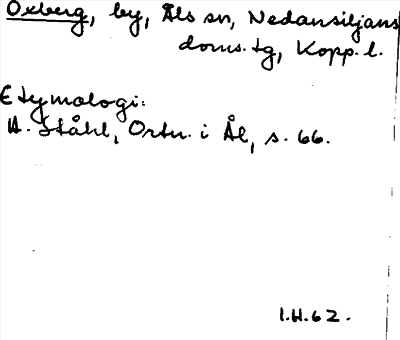 Oxberg, by, Åls sn, Nedansiljans
doms. tg, Kopp. l.
Etymologi:
H. Ståhl, Ortn. i Ål, s. 66.
I.H.62.